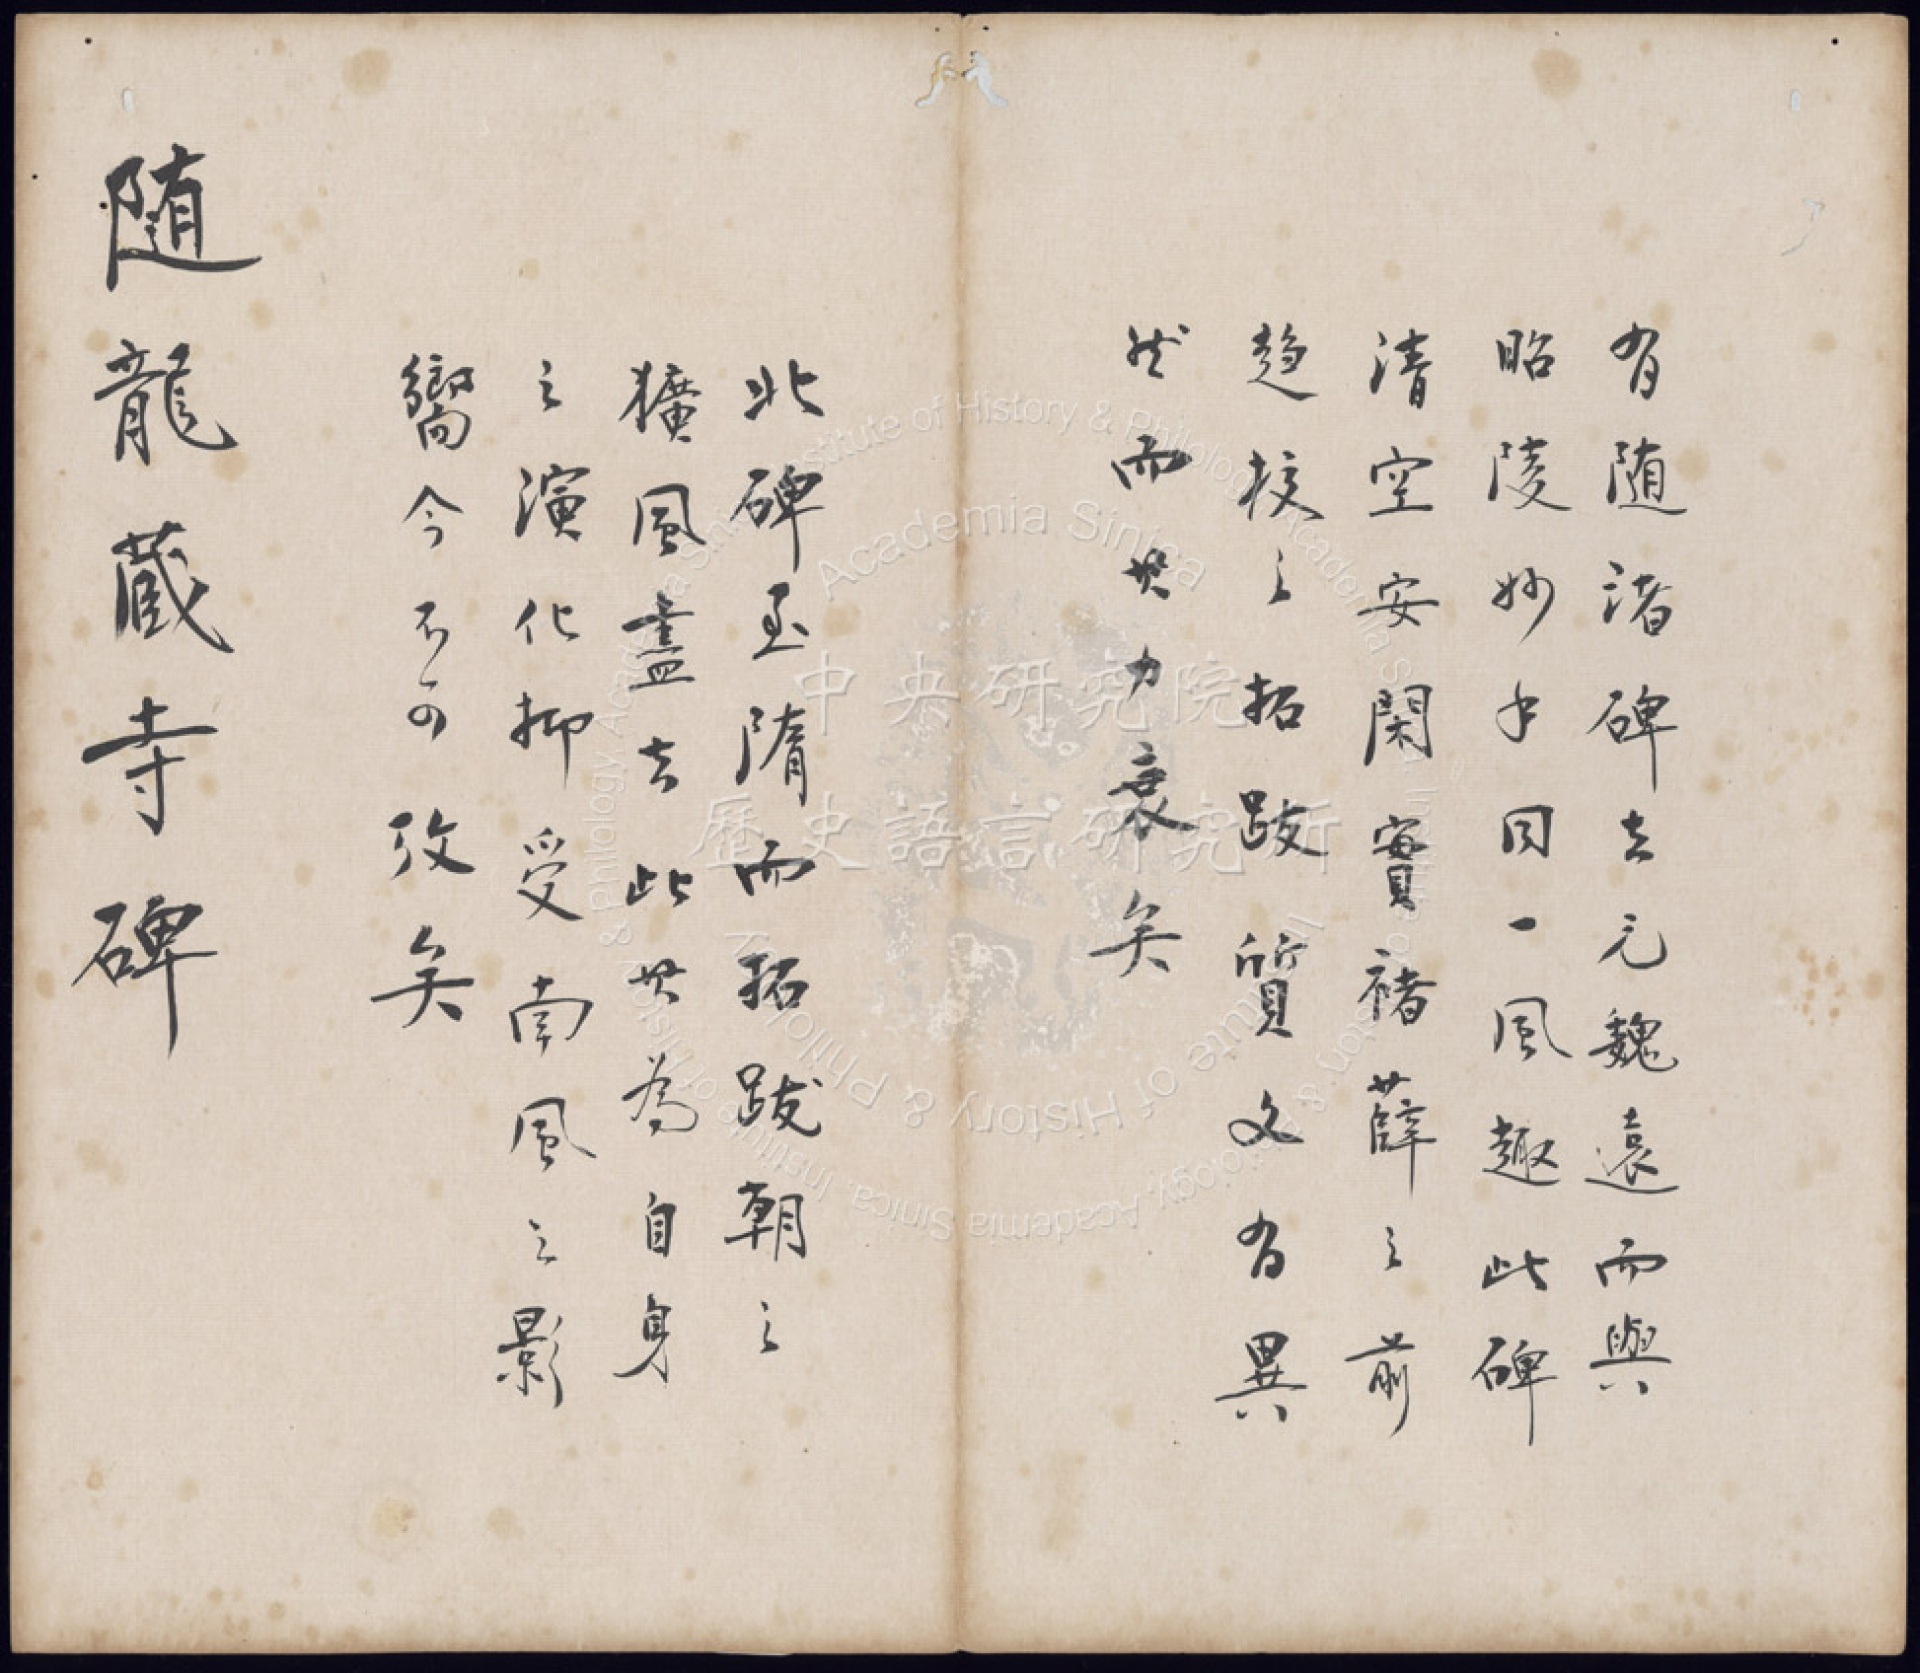 有随诸碑去元魏遠而與
昭陵妙手同一風趣此碑
清空安閑實褚薛之前
趋校之拓跋質文有異
然而其力衰矣
北碑至隋而拓跋朝之
獷風盡去此其為自身
之演化抑受南風之影
嚮今不可攷矣
随龍蔵寺碑
中央研究院
歷史語言研究所
Institute of History & Philology, Academia Sinica